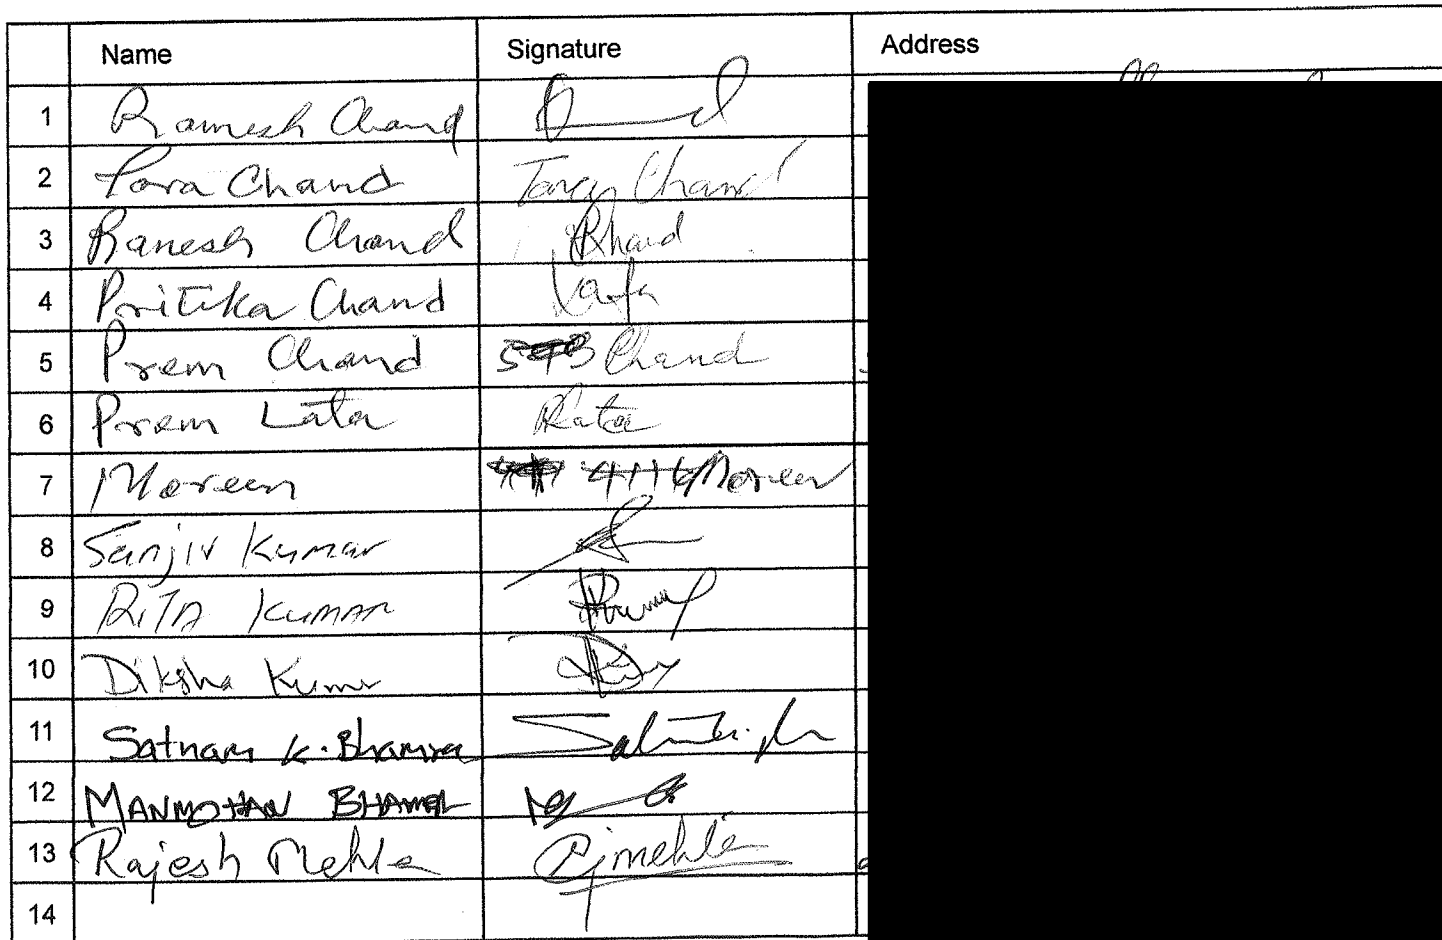 Name Signature Address
1 Ramesh Chand
2 Tara Chand Tara Chand
3 Ranesh Chand RChand
4 Pritika Chand
5 Prem Chand Chand
6 Prem Lata Lata
7 Moreen Moreen
8 Sanjiv Kumar
9 RITA KUMAR
10 Diksha Kumar
11 Satnam K. Bhamra
12 MANMOHAN BHAMRA
13 Rajesh Mehta Rjmehta
14